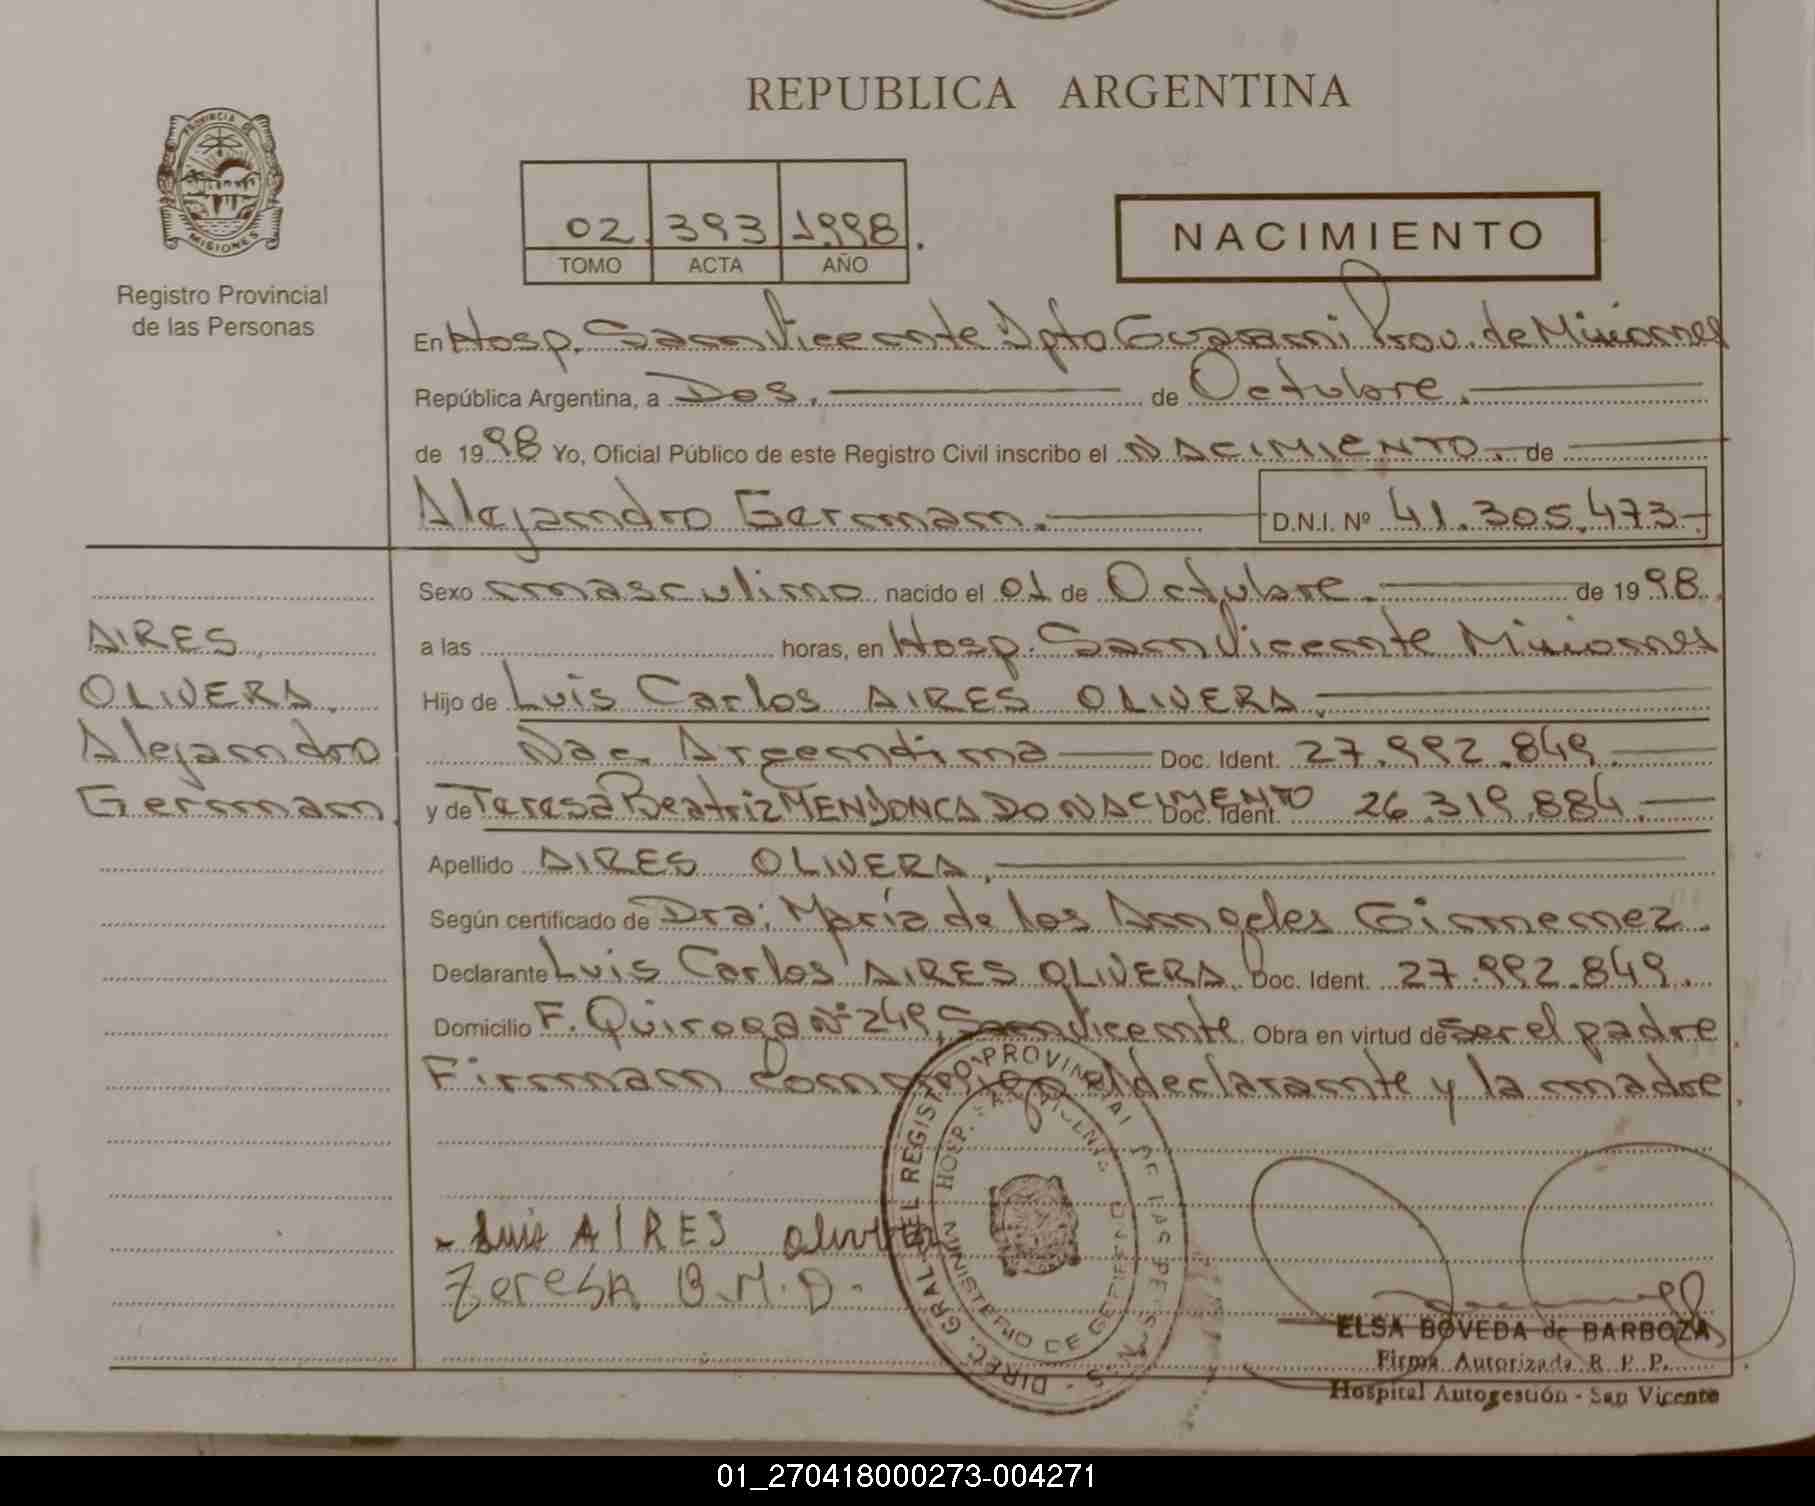 REPUBLICA ARGENTINA
PROVINCIA DE
MISIONES
Registro Provincial
de las Personas
02 393 1998.
TOMO ACTA AÑO
NACIMIENTO
En Hosp. San Vicente Dpto Guarani Prov. de Misiones
República Argentina, a Dos. de Octubre.
de 1998 Yo, Oficial Público de este Registro Civil inscribo el NACIMIENTO. de
Alejandro German. D.N.I. Nº 41.305.473
AIRES
OLIVERA.
Alejandro
German.
Sexo masculino nacido el 01 de Octubre. de 1998.
a las horas, en Hosp. San Vicente Misiones
Hijo de Luis Carlos AIRES OLIVERA.
Nac. Argentina Doc. Ident. 27.992.849.
y de Teresa Beatriz MENDONCA DO NACIMENTO Doc. Ident. 26.319.884.
Apellido AIRES OLIVERA.
Según certificado de Dra; María de los Angeles Gimenez.
Declarante Luis Carlos AIRES OLIVERA. Doc. Ident. 27.992.849.
Domicilio F. Quiroga Nº 249, San Vicente. Obra en virtud de ser el padre
Firman conmigo el declarante y la madre.
DIREC. GRAL. DEL REGISTRO PROVINCIAL DE LAS PERSONAS
HOSP.
MINISTERIO DE
Luis AIRES Olivera
Teresa B.M.D.
ELSA BOVEDA de BARBOZA
Firma Autorizada R. P. P.
Hospital Autogestión - San Vicente
01_270418000273-004271